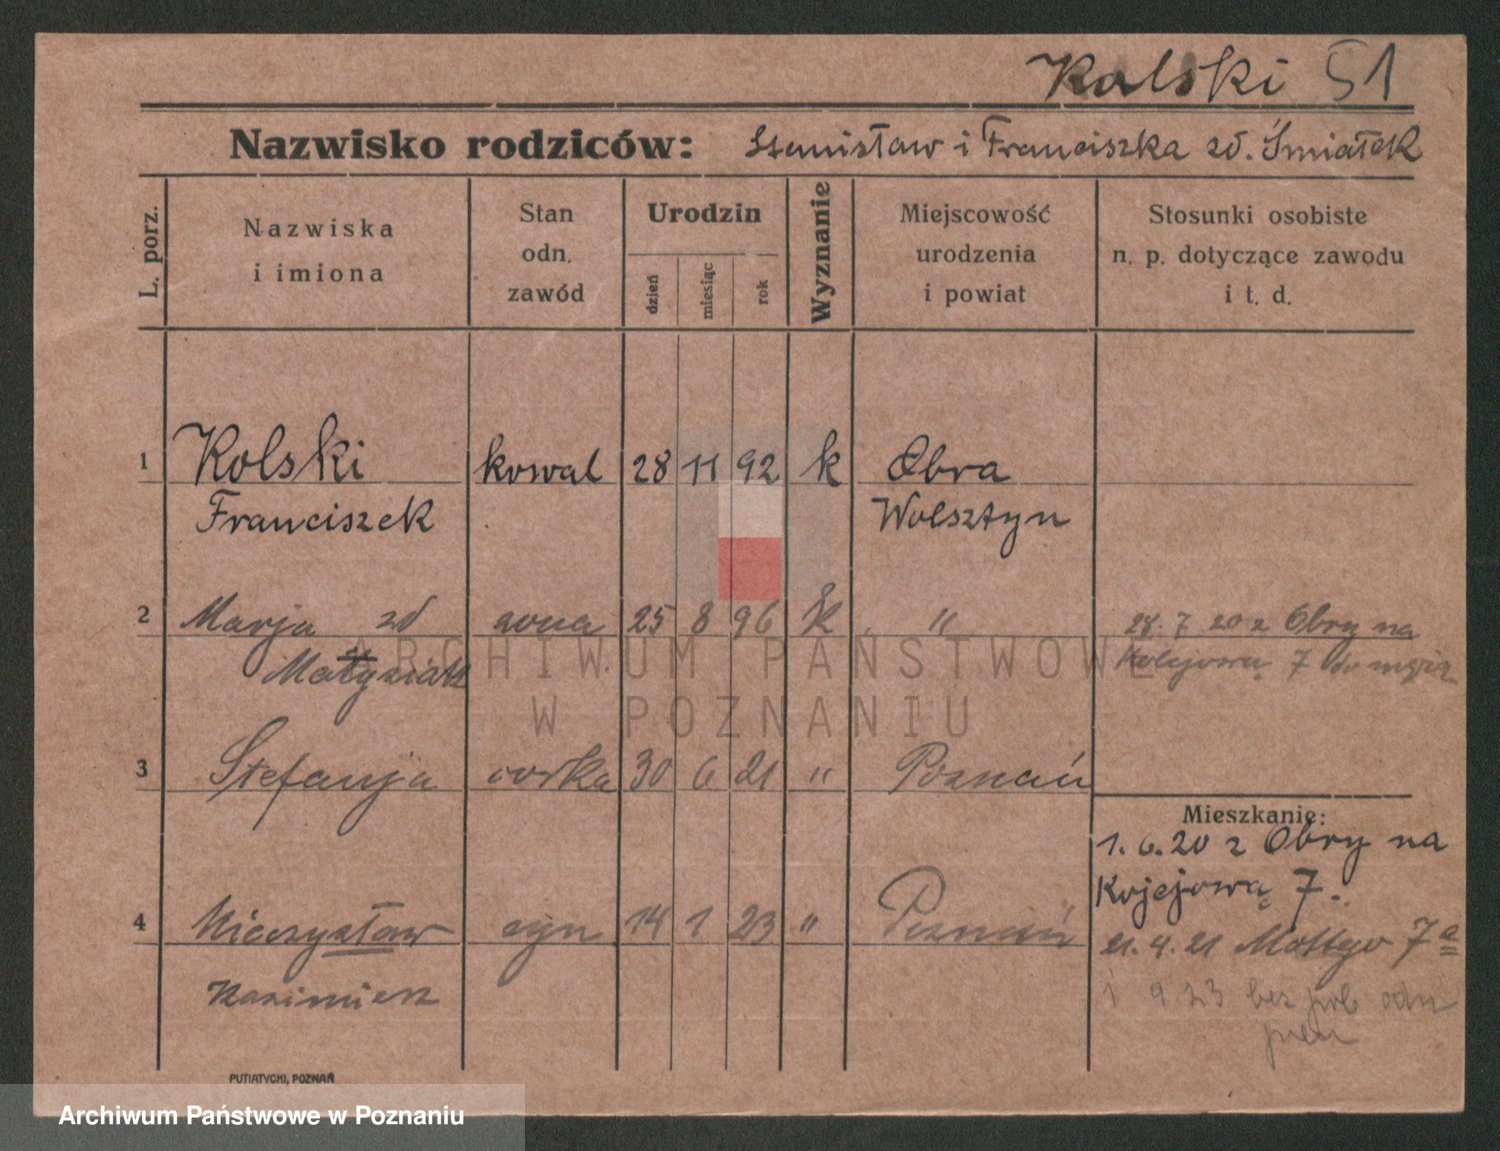 Kolski 51
Nazwisko rodziców: Stanisław i Franciszka zd. Śmiałek
L. porz.
Nazwiska
i imiona
Stan
odn.
zawód
Urodzin
dzień
miesiąc
rok
Wyznanie
Miejscowość
urodzenia
i powiat
Stosunki osobiste
n. p. dotyczące zawodu
i t. d.
1 Kolski kowal 28 11 92 k Obra
Franciszek Wolsztyn
2 Marja zd żona 25 8 96 k " 28. 7 20 z Obry na
Kolejową 7 do męża
ARCHIWUM PAŃSTWOWE
W POZNANIU
3 Stefanja córka 30 6 21 " Poznań
Mieszkanie:
1. 6. 20 z Obry na
Kojejową 7.
4 Mieczysław syn 14 1 23 " Poznań
21. 4. 21 7a
Kazimierz
1 9 23 bez
PUTIATYCKI, POZNAŃ
Archiwum Państwowe w Poznaniu